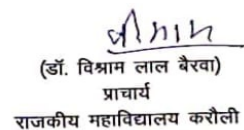 (डॉ. विश्राम लाल बैरवा)
प्राचार्य
राजकीय महाविद्यालय करौली